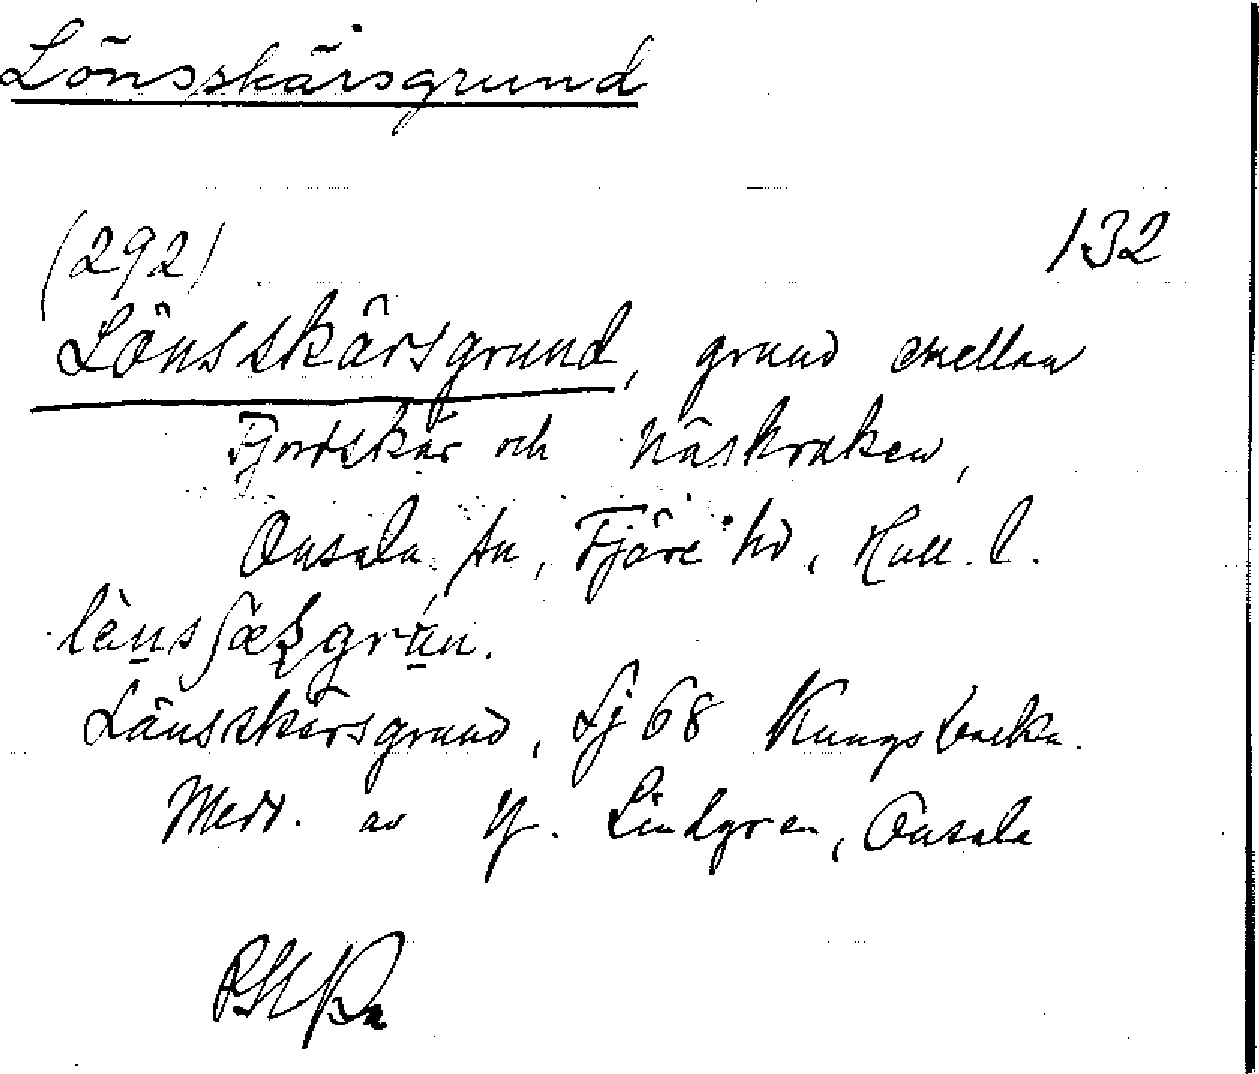 Lönsskärsgrund
(292) 132
Lönsskärsgrund, grund mellan
Fjordskär och Näskraken,
Onsala sn, Fjäre hd, Hall. l.
Länsskärsgrund, Sj 68 Kungsbacka.
Medd. av Lindgren, Onsala